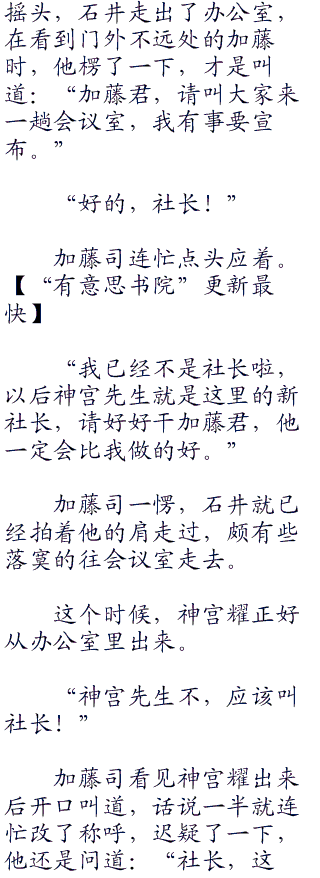 摇头，石井走出了办公室，
在看到门外不远处的加藤
时，他楞了一下，才是叫
道：“加藤君，请叫大家来
一趟会议室，我有事要宣
布。”
“好的，社长！”
加藤司连忙点头应着。
【“有意思书院”更新最
快】
“我已经不是社长啦，
以后神宫先生就是这里的新
社长，请好好干加藤君，他
一定会比我做的好。”
加藤司一愣，石井就已
经拍着他的肩走过，颇有些
落寞的往会议室走去。
这个时候，神宫耀正好
从办公室里出来。
“神宫先生不，应该叫
社长！”
加藤司看见神宫耀出来
后开口叫道，话说一半就连
忙改了称呼，迟疑了一下，
他还是问道：“社长，这